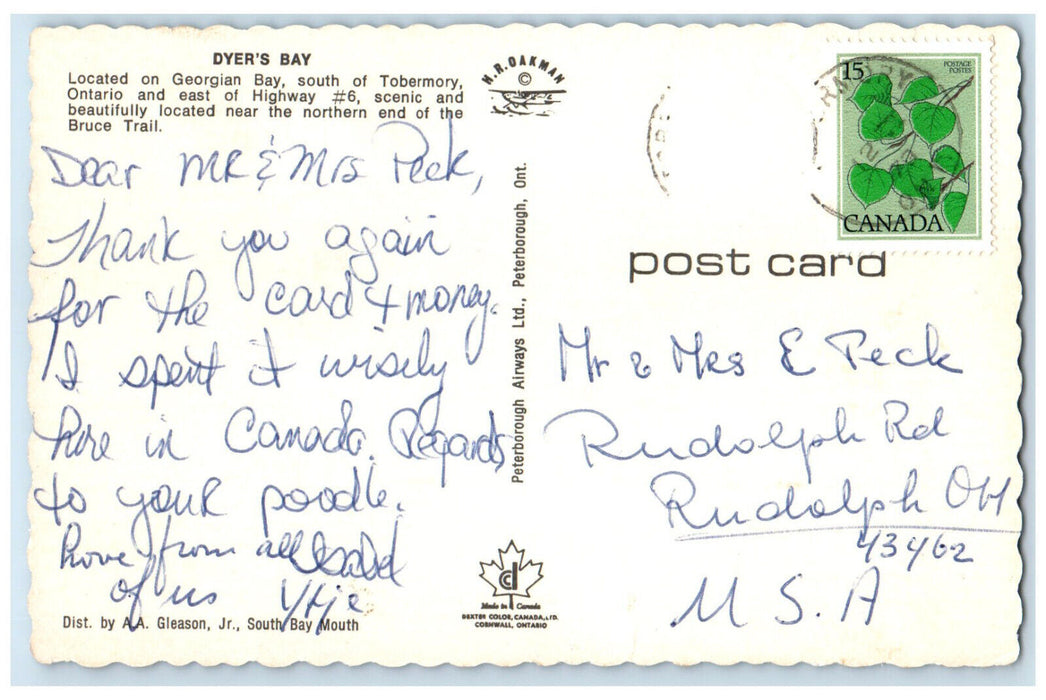 DYER'S BAY
Located on Georgian Bay, south of Tobermory,
Ontario and east of Highway #6, scenic and
beautifully located near the northern end of the
Bruce Trail.
H.R. OAKMAN
©
15
POSTAGE
POSTES
CANADA
post card
Dear MR & Mrs Peck,
Thank you again
for the card & money.
I spent it wisely
here in Canada. Regards
to your poodle.
Love from all
of us
Peterborough Airways Ltd., Peterborough, Ont.
Mr & Mrs E Peck
Rudolph Rd
Rudolph OH
43462
U S. A
Made in Canada
DEXTER COLOR, CANADA, LTD.
CORNWALL, ONTARIO
Dist. by A.A. Gleason, Jr., South Bay Mouth